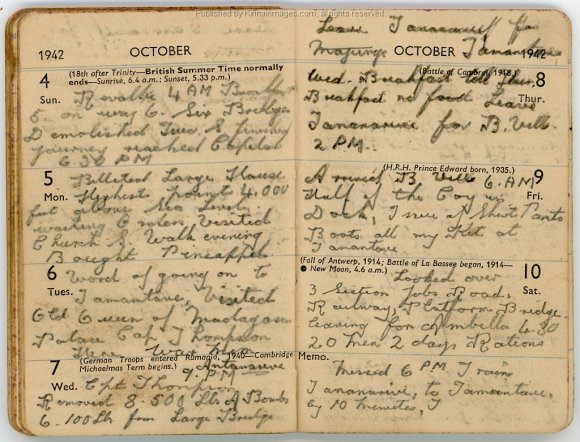 Published by Kirinaimages.com, all rights reserved
1942 OCTOBER
(18th after Trinity—British Summer Time normally
4 ends—Sunrise, 6.4 a.m.; Sunset, 5.33 p.m.)
Sun. Revallie 4 AM Breakfast
5. on way 6. Six Bridges
Demolished Trees &
journey reached Capital
6.30 PM
5 Billeted Large House
Mon. Highest point 4.000
feet above Sea Level.
washing Orders Visited
Church & Walk evening
Bought Pineapple
6 Word of going on to
Tues. Tamantave, Visited
Old Queen of Madagascar
Palace Capt Thompson
(German Troops entered Rumania, 1940—Cambridge
7 Michaelmas Term begins.) Antananarive
9 PM
Wed. Cpt Thompson
Removed 8. 500 Lbs of Bombs
6. 100 Lbs from Large Bridge
Leave Tananarive for
Majunga Tamantave
OCTOBER 1942
(Battle of Cambrai, 1918.) 8
Wed. Breakfast
Breakfast no food Leave Thur.
Tananarive for B. Ville
2 PM.
(H.R.H. Prince Edward born, 1935.) 9
Arrived B. Ville 6. AM
Half of the Coy in Fri.
Dock, I wear Short Pants
Boots all my Kit at
Tamantave
(Fall of Antwerp, 1914; Battle of La Bassee began, 1914—
● New Moon, 4.6 a.m.) 10
Looked over
3 Section Jobs Road, Sat.
Railway, Platform Bridge.
leaving for 4.30
20 Men 2 days Rations
Memo. Missed 6 PM Train
Tananarive, to Tamantave,
by 10 Minutes, I